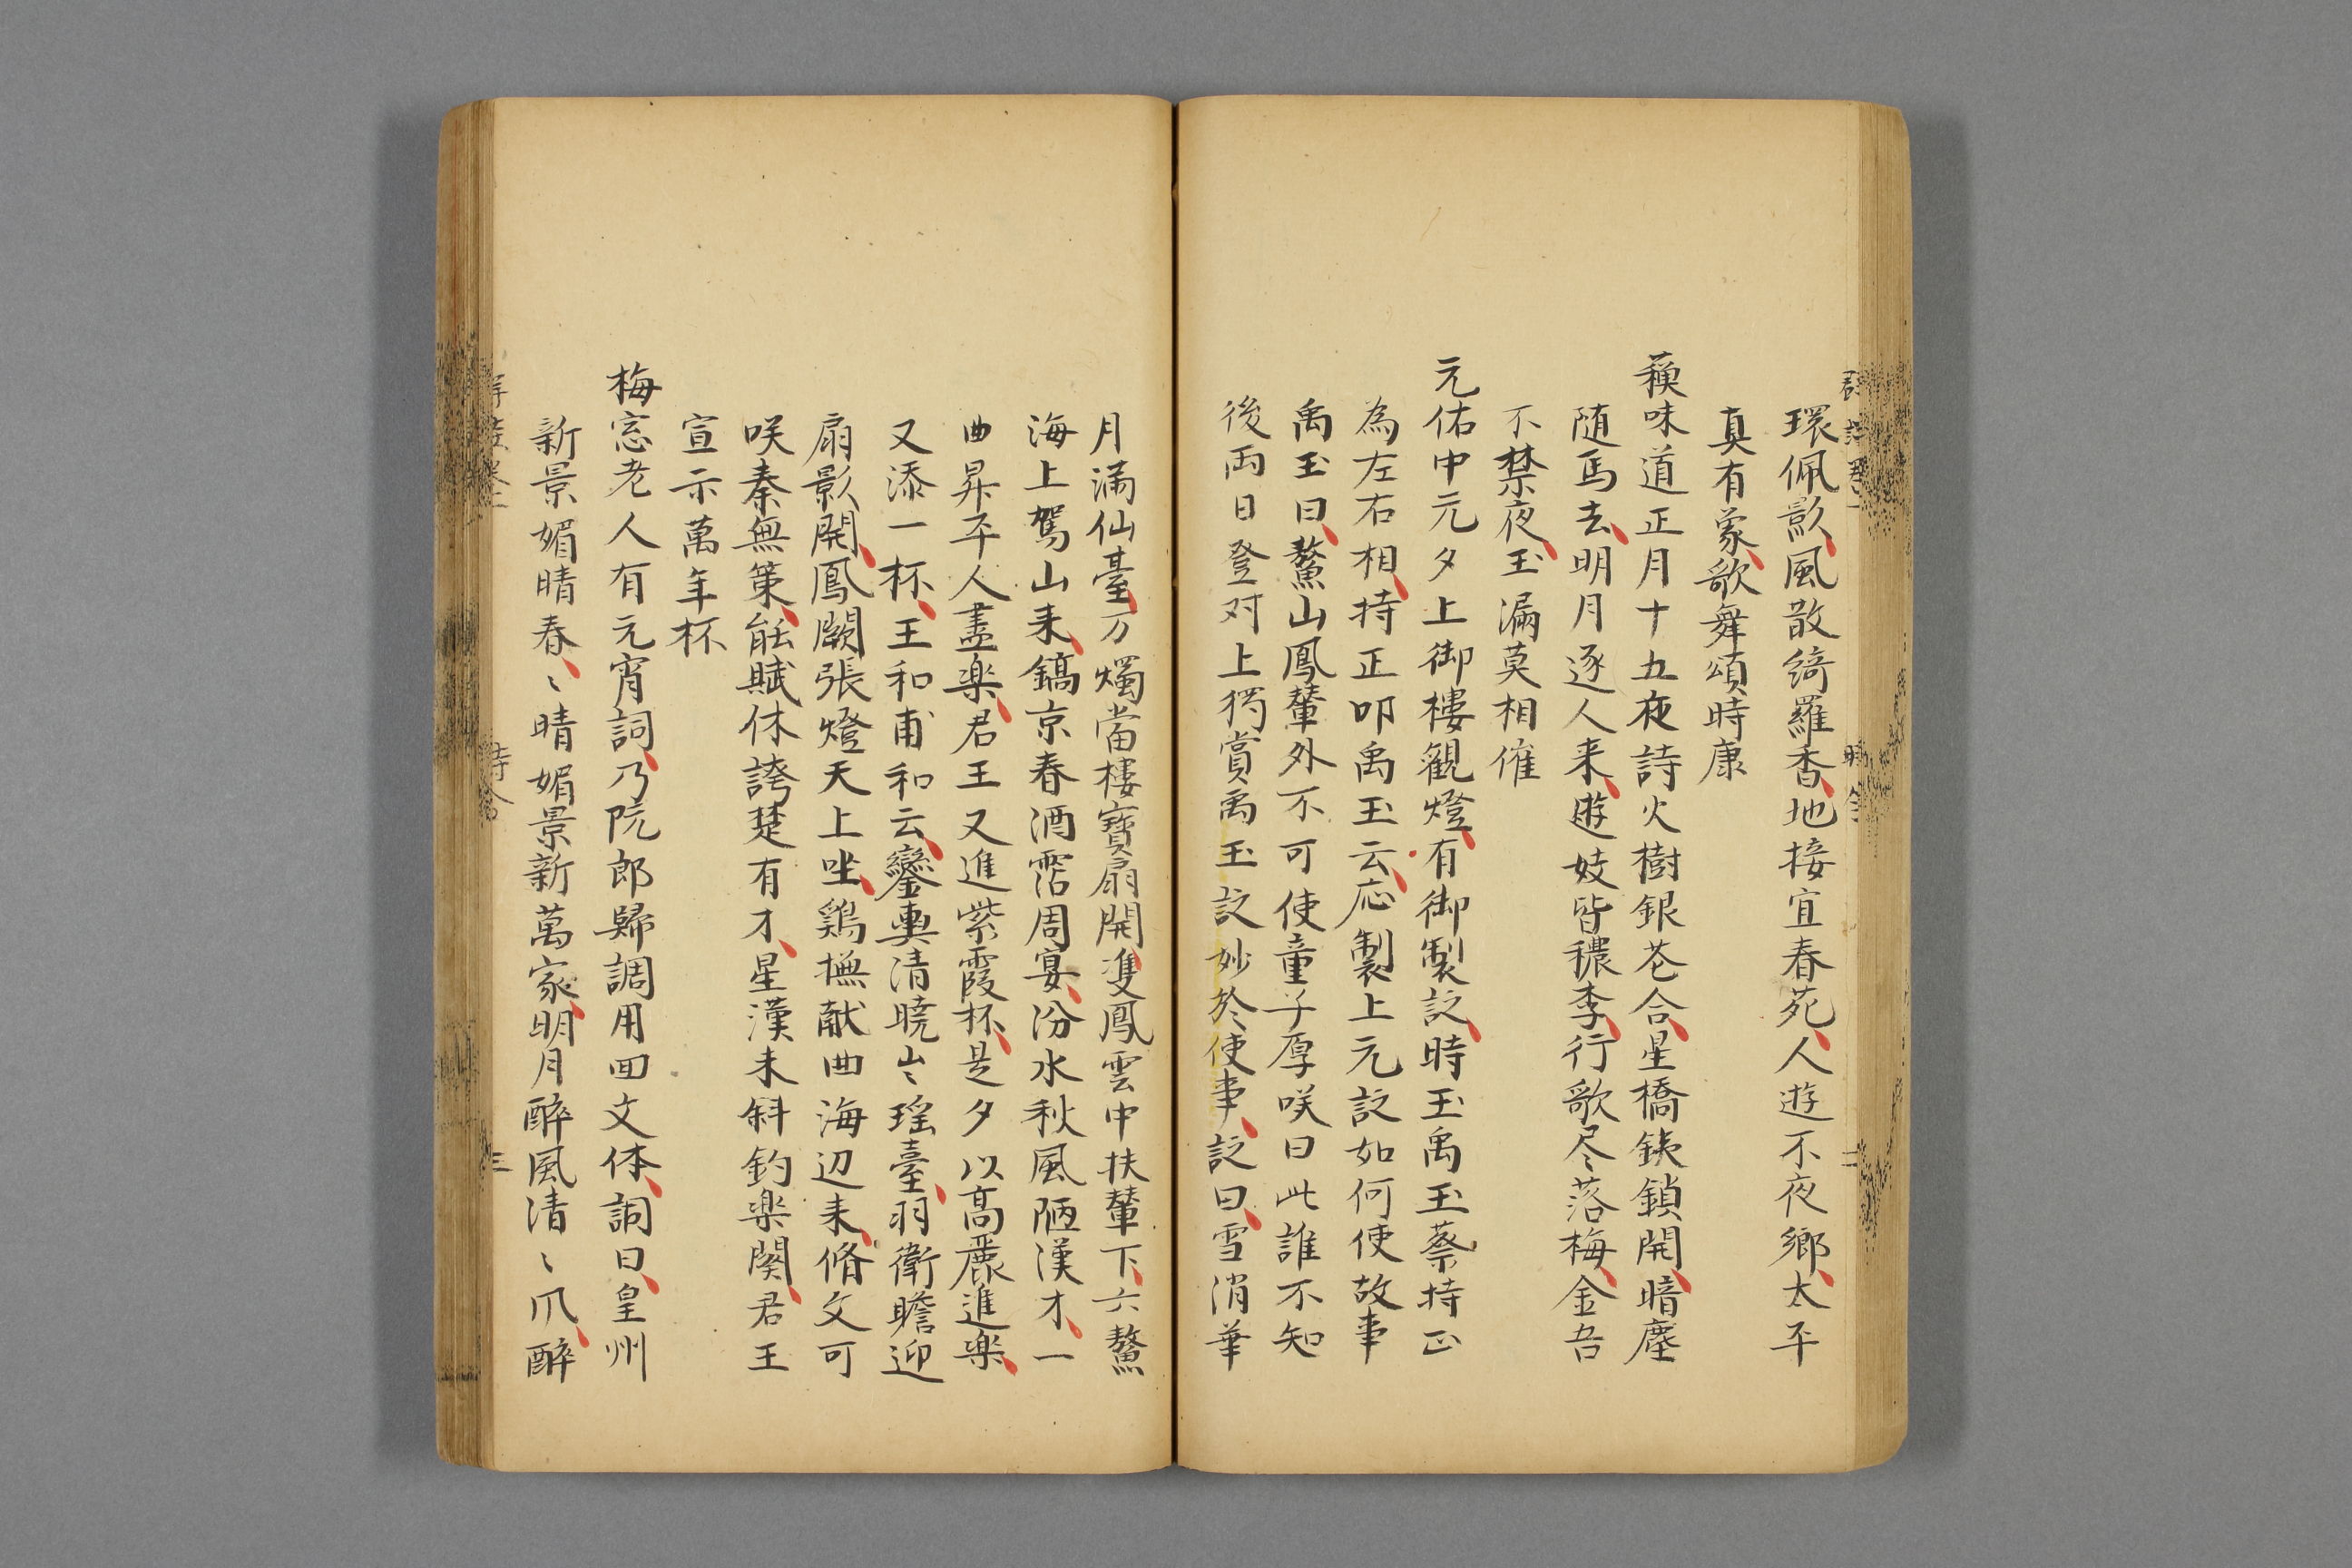 環佩影風散綺羅香地接宜春苑人遊不夜鄉太平
真有象歌舞頌時康
蘓味道正月十五夜詩火樹銀花合星橋鉄鎖開暗塵
随馬去明月逐人来遊妓皆穠李行歌尽落梅金吾
不禁夜玉漏莫相催
元佑中元夕上御樓観燈有御製詩時王禹玉蔡持正
為左右相持正叩禹玉云応製上元詩如何使故事
禹玉曰鰲山鳳輦外不可使童子厚咲曰此誰不知
後両日登対上獨賞禹玉詩妙於使事詩曰雪消華
月滿仙臺万燭當樓寶扇開雙鳳雲中扶輦下六鰲
海上駕山来鎬京春酒霑周宴汾水秋風陋漢才一
曲昇平人盡楽君王又進紫霞杯是夕以高麗進楽
又添一杯王和甫和云鑾輿清暁出瑶臺羽衛瞻迎
扇影開鳳闕張燈天上坐鶏橅献曲海辺来脩文可
咲秦無策能賦休誇楚有才星漢未斜鈞楽闋君王
宣示萬年杯
梅窓老人有元宵詞乃阮郎歸調用回文体詞曰皇州
新景媚晴春〻晴媚景新萬家明月酔風清〻爪酔
三